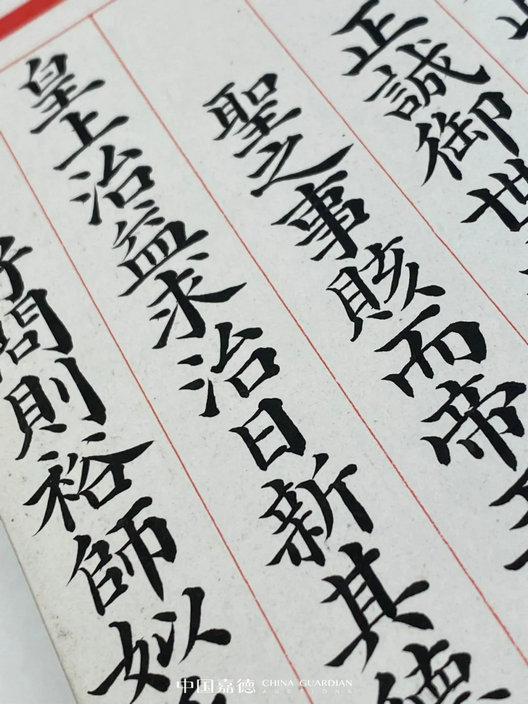 正誠御世
聖之事賅而帝王
皇上治益求治日新其德
好問則裕師姒
中国嘉德 CHINA GUARDIAN
AUCTIONS